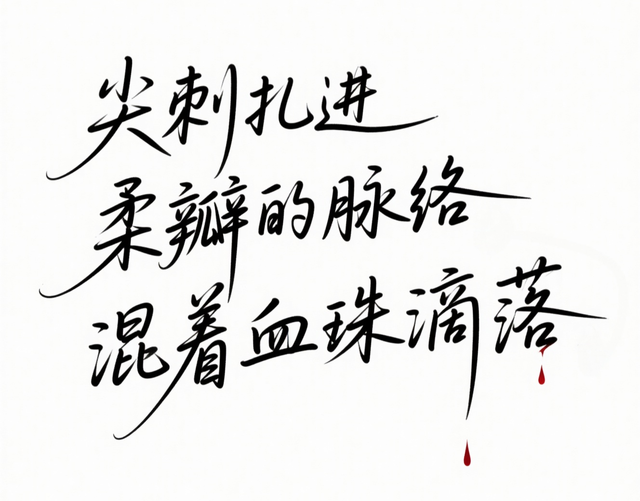 尖刺扎进
柔瓣的脉络
混着血珠滴落